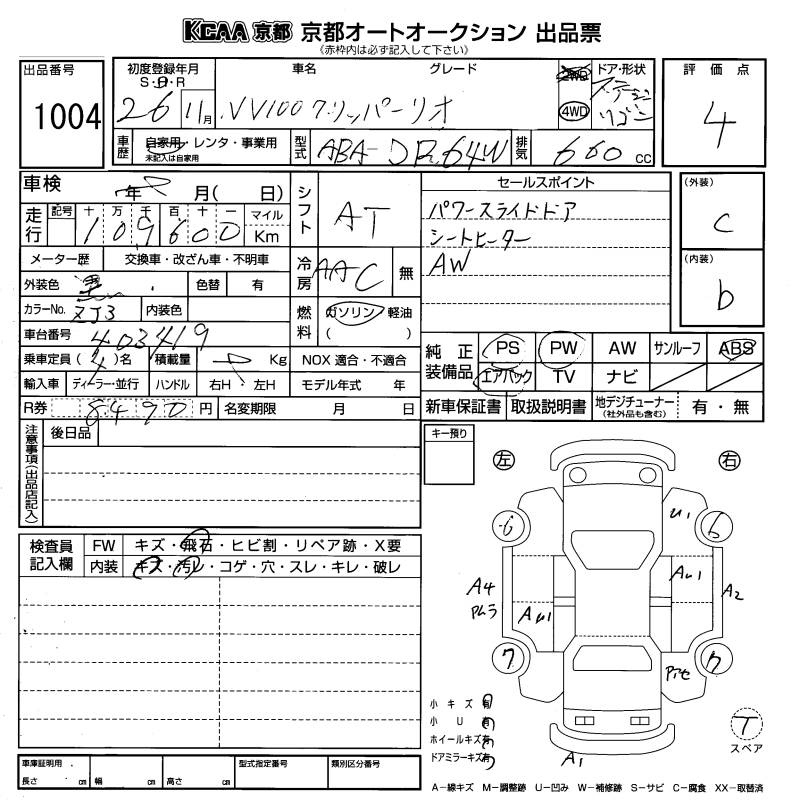 KCAA 京都 京都オートオークション 出品票
《赤枠内は必ず記入して下さい》
出品番号
1004
初度登録年月
S・H・R
26 11月
車名 グレード
VV100クリッパーリオ
2WD
4WD
ドア・形状
ステーション
ワゴン
評価点
4
車歴
自家用・レンタ・事業用
未記入は自家用
型式
ABA-DR64W
排気
660 CC
車検
年 月( 日)
走行
記号 十 万 千 百 十 一
109600
マイル
Km
メーター歴 交換車・改ざん車・不明車
外装色 黒 色替 有
カラーNo. ZJ3 内装色
車台番号 403419
乗車定員 (4)名 積載量 Kg
輸入車 ディーラー・並行 ハンドル 右H 左H
R券 8490 円 名変期限 月 日
シフト AT
冷房 AAC 無
燃料 ガソリン 軽油
( )
NOX 適合・不適合
モデル年式 年
セールスポイント
パワースライドドア
シートヒーター
AW
(外装)
C
(内装)
b
純正装備品
PS PW AW サンルーフ ABS
エアバック TV ナビ
新車保証書 取扱説明書 地デジチューナー
(社外品も含む)
有・無
注意事項(出品店記入)
後日品
キー預り
検査員記入欄
FW キズ・飛石・ヒビ割・リペア跡・X要
内装 キズ・汚レ・コゲ・穴・スレ・キレ・破レ
左 右
6 U1 6
A4 AU1 A2
AU1
7 7
A1
T
スペア
小キズ有
小U有
ホイールキズ有
ドアミラーキズ有
車庫証明用
長さ cm 幅 cm 高さ cm
型式指定番号
類別区分番号
A-線キズ M-調整跡 U-凹み W-補修跡 S-サビ C-腐食 XX-取替済